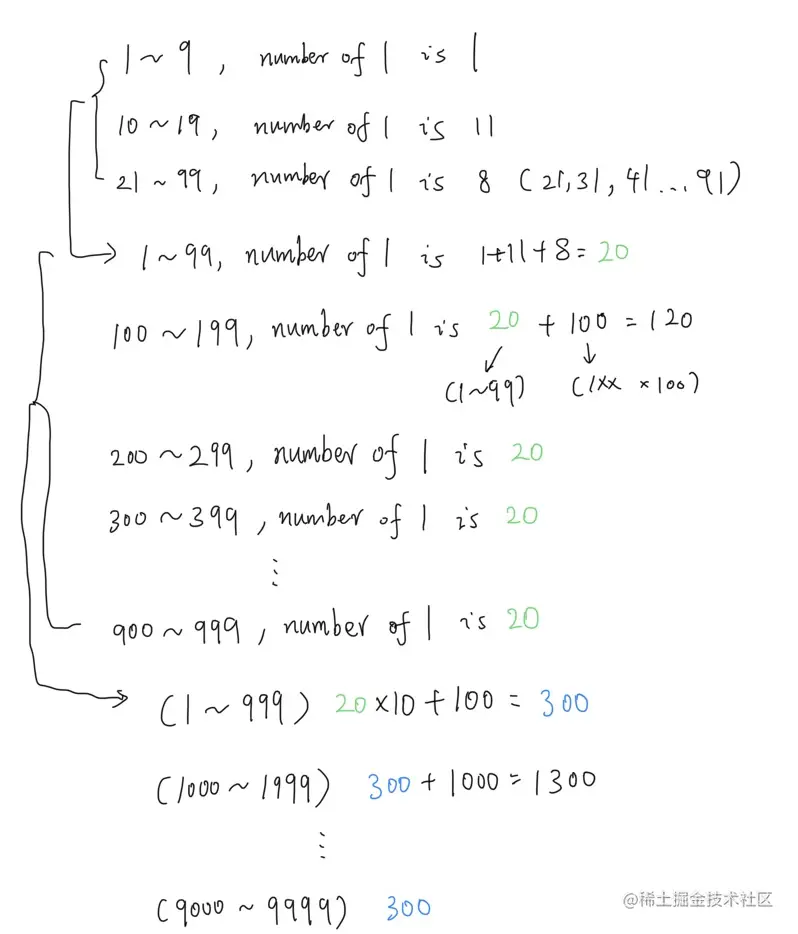 1 ~ 9, number of 1 is 1
10 ~ 19, number of 1 is 11
21 ~ 99, number of 1 is 8 (21,31,41...91)
1 ~ 99, number of 1 is 1+11+8=20
100 ~ 199, number of 1 is 20 + 100 = 120
(1~99) (1XX × 100)
200 ~ 299, number of 1 is 20
300 ~ 399, number of 1 is 20
⋮
900 ~ 999, number of 1 is 20
(1 ~ 999) 20×10+100 = 300
(1000 ~ 1999) 300+1000=1300
⋮
(9000 ~ 9999) 300
@稀土掘金技术社区